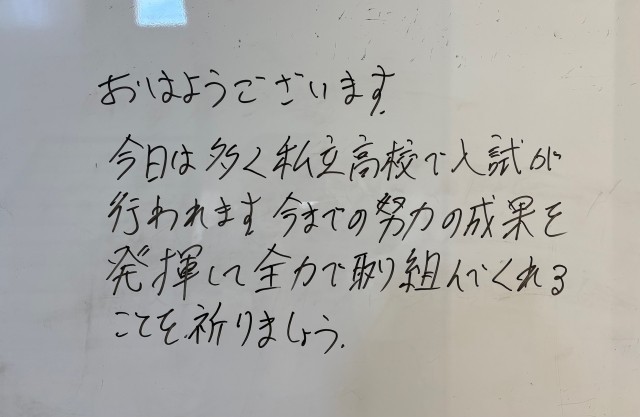 おはようございます.
今日は多く私立高校で入試が
行われます今までの努力の成果を
発揮して全力で取り組んでくれる
ことを祈りましょう.